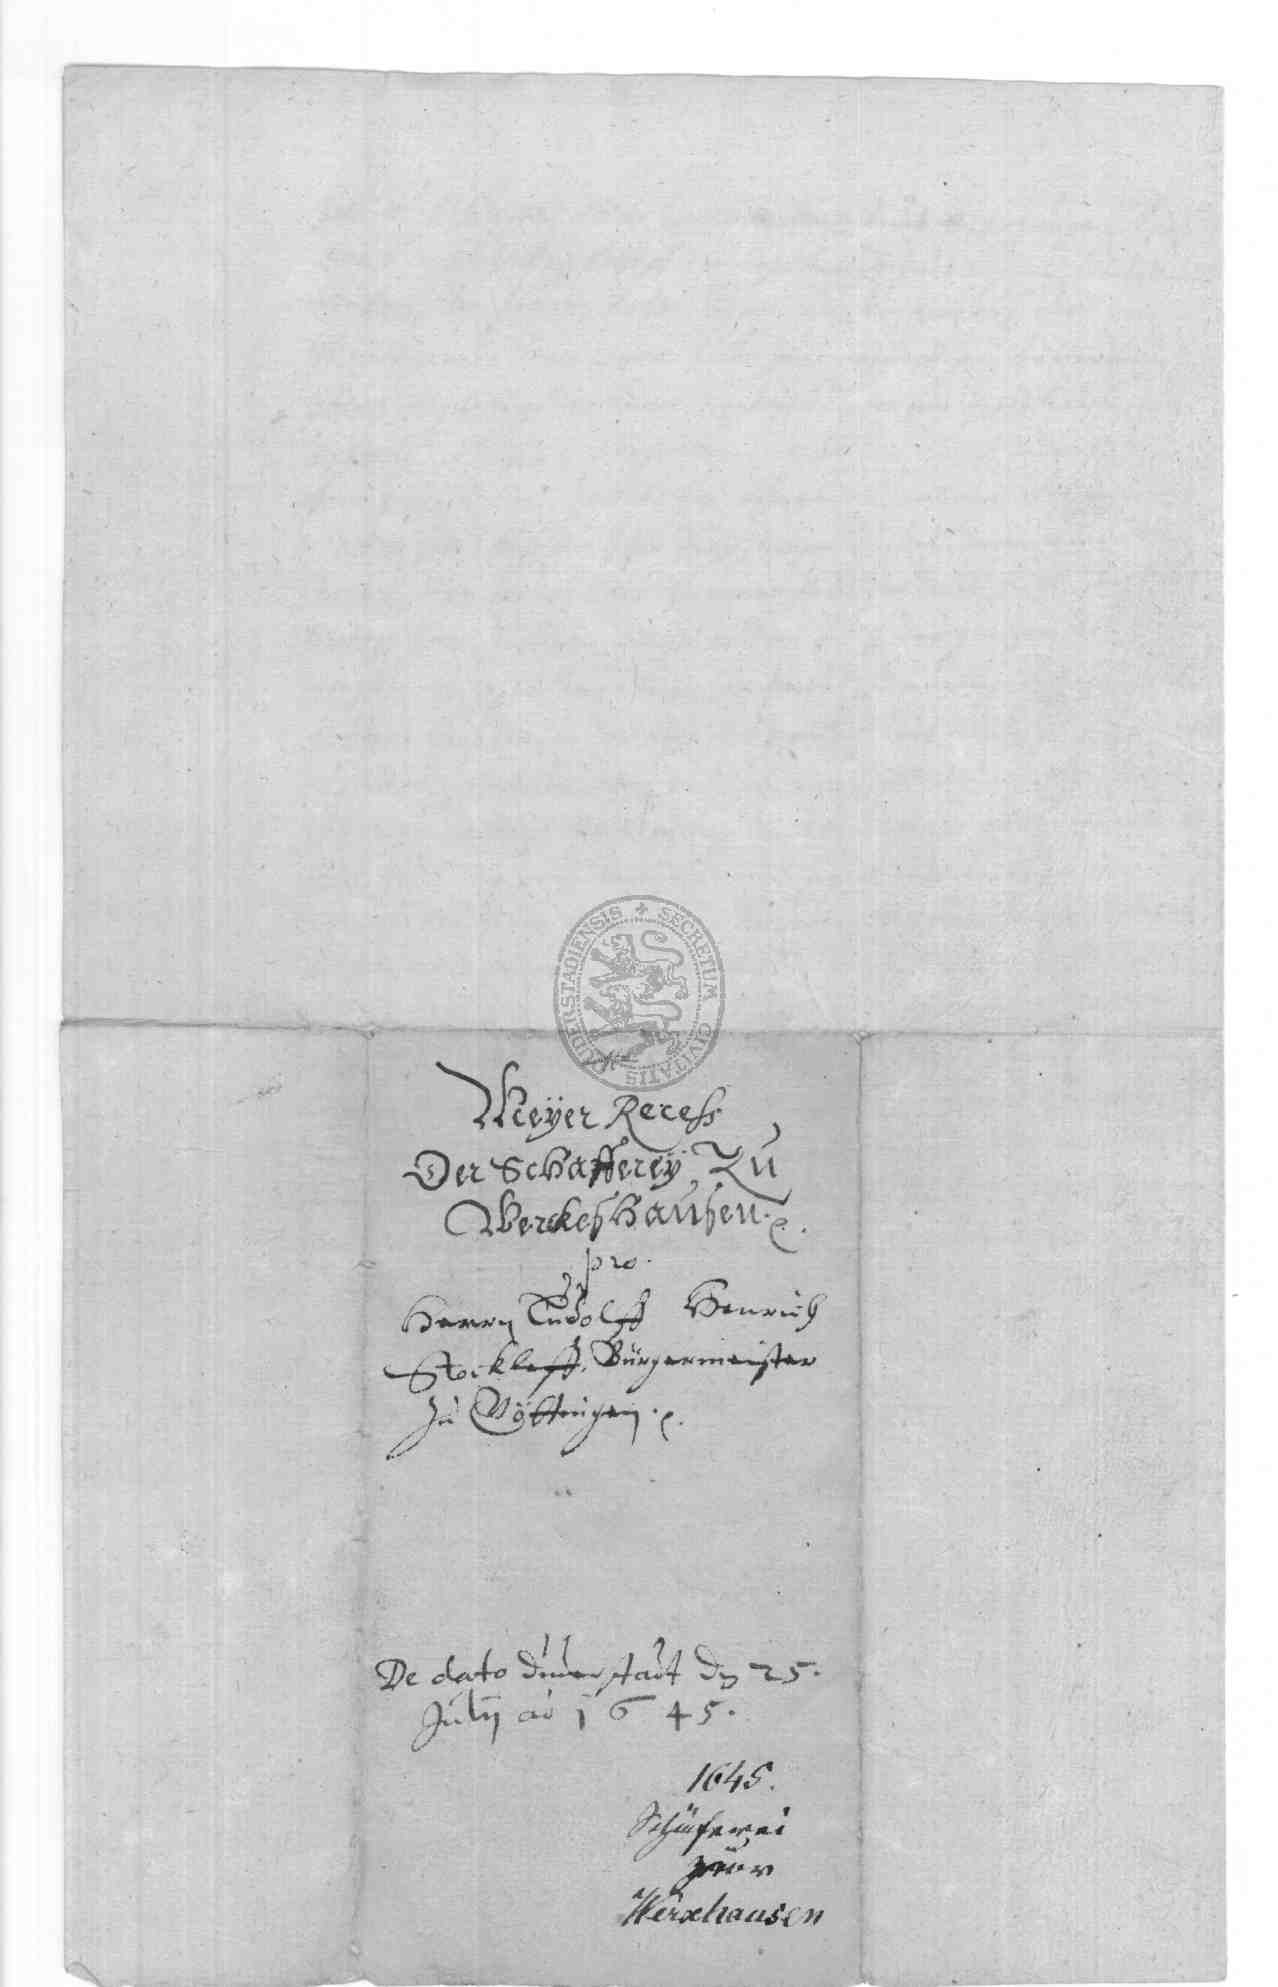 SECRETUM CIVITATIS DUDERSTADIENSIS
Meÿer Recess
Der Schaffereÿ Zu
Werckeßhaußen.
pro.
Herrn Ludolff Henrich
Stockleff, Bürgermeister
zu Göttingen.
De dato Duderstadt dn 25.
Julij ao 1645.
1645.
Schäferei
Werxhausen